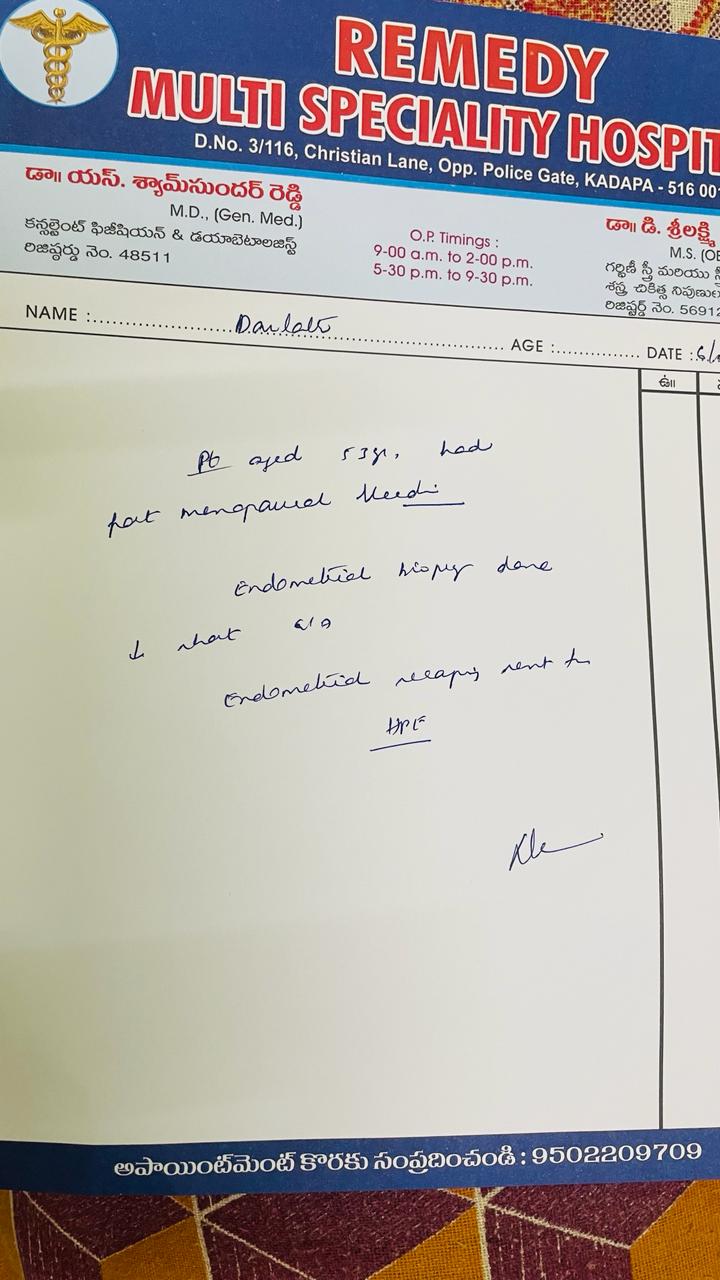 REMEDY
MULTI SPECIALITY HOSPIT
D.No. 3/116, Christian Lane, Opp. Police Gate, KADAPA - 516 00
డా॥ యస్. శ్యామ్‌సుందర్ రెడ్డి
M.D., (Gen. Med.)
కన్సల్టెంట్ ఫిజీషియన్ & డయాబెటాలజిస్ట్
రిజిష్టర్డు నెం. 48511
O.P. Timings :
9-00 a.m. to 2-00 p.m.
5-30 p.m. to 9-30 p.m.
డా॥ డి. శ్రీలక్ష్మి
M.S. (OB
గర్భిణీ స్త్రీ మరియు
శస్త్ర చికిత్స నిపుణులు
రిజిష్టర్డ్ నెం. 56912
NAME : AGE : DATE :
ఉ॥
Pt aged 53yr, had
post menopausal bleeding
Endometrial biopsy done
↓ short GA
Endometrial scrapings sent for
HPE
అపాయింట్‌మెంట్ కొరకు సంప్రదించండి : 9502209709